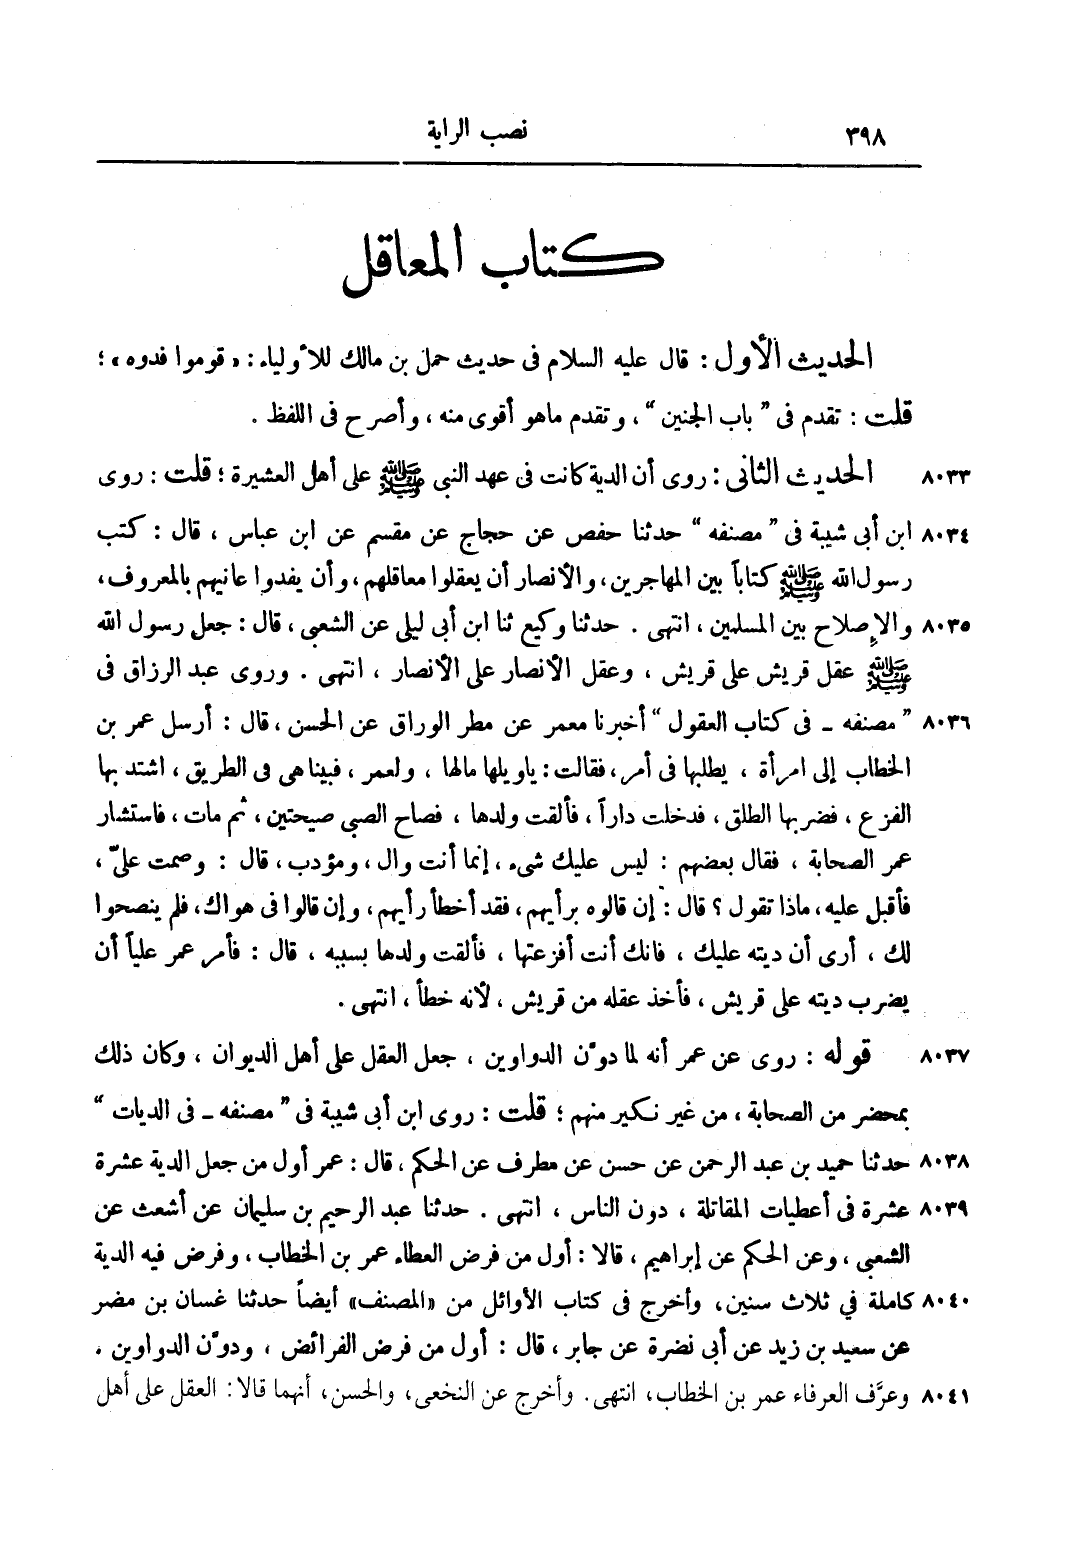 ٣٩٨ نصب الراية
كتاب المعاقل
الحديث الأول : قال عليه السلام فى حديث حمل بن مالك للأولياء : « قوموا فدوه » ؛
قلت : تقدم فى ” باب الجنين “ ، وتقدم ماهو أقوى منه ، وأصرح فى اللفظ .
٨٠٣٣ الحديث الثانى : روى أن الدية كانت فى عهد النبى ﷺ على أهل العشيرة ؛ قلت : روى
٨٠٣٤ ابن أبى شيبة فى ” مصنفه “ حدثنا حفص عن حجاج عن مقسم عن ابن عباس ، قال : كتب
رسول الله ﷺ كتاباً بين المهاجرين ، والأنصار أن يعقلوا معاقلهم ، وأن يفدوا عانيهم بالمعروف ،
٨٠٣٥ والإصلاح بين المسلمين ، انتهى . حدثنا وكيع ثنا ابن أبى ليلى عن الشعبى ، قال : جعل رسول الله
ﷺ عقل قريش على قريش ، وعقل الأنصار على الأنصار ، انتهى . وروى عبد الرزاق فى
٨٠٣٦ ” مصنفه ـ فى كتاب العقول “ أخبرنا معمر عن مطر الوراق عن الحسن ، قال : أرسل عمر بن
الخطاب إلى امرأة ، يطلبها فى أمر ، فقالت : ياويلها مالها ، ولعمر ، فبينا هى فى الطريق ، اشتد بها
الفزع ، فضربها الطلق ، فدخلت داراً ، فألقت ولدها ، فصاح الصبى صيحتين ، ثم مات ، فاستشار
عمر الصحابة ، فقال بعضهم : ليس عليك شىء ، إنما أنت وال ، ومؤدب ، قال : وصمت علىّ ،
فأقبل عليه ، ماذا تقول ؟ قال : إن قالوه برأيهم ، فقد أخطأ رأيهم ، وإن قالوا فى هواك ، فلم ينصحوا
لك ، أرى أن ديته عليك ، فانك أنت أفزعتها ، فألقت ولدها بسببه ، قال : فأمر عمر علياً أن
يضرب ديته على قريش ، فأخذ عقله من قريش ، لأنه خطأ ، انتهى .
٨٠٣٧ قوله : روى عن عمر أنه لما دوّن الدواوين ، جعل العقل على أهل الديوان ، وكان ذلك
بمحضر من الصحابة ، من غير نكير منهم ؛ قلت : روى ابن أبى شيبة فى ” مصنفه ـ فى الديات “
٨٠٣٨ حدثنا حميد بن عبد الرحمن عن حسن عن مطرف عن الحكم ، قال : عمر أول من جعل الدية عشرة
٨٠٣٩ عشرة فى أعطيات المقاتلة ، دون الناس ، انتهى . حدثنا عبد الرحيم بن سليمان عن أشعث عن
الشعبى ، وعن الحكم عن إبراهيم ، قالا : أول من فرض العطاء عمر بن الخطاب ، وفرض فيه الدية
٨٠٤٠ كاملة في ثلاث سنين، وأخرج فى كتاب الأوائل من «المصنف» أيضاً حدثنا غسان بن مضر
عن سعيد بن زيد عن أبى نضرة عن جابر ، قال : أول من فرض الفرائض ، ودوّن الدواوين ،
٨٠٤١ وعرَّف العرفاء عمر بن الخطاب، انتهى. وأخرج عن النخعى، والحسن، أنهما قالا: العقل على أهل